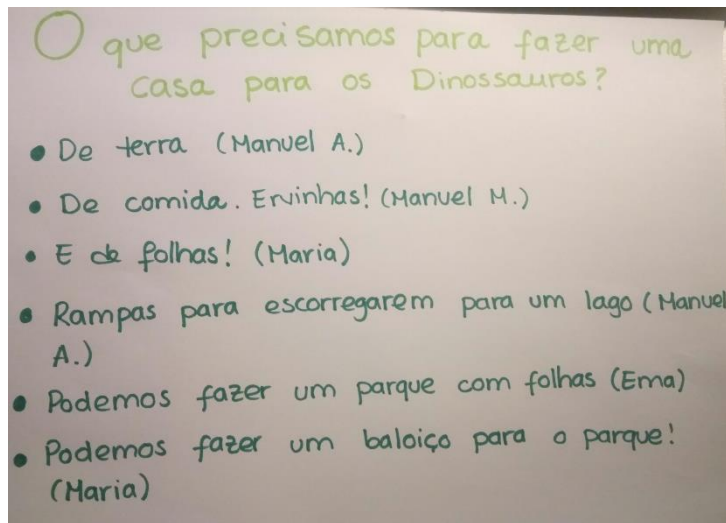 O que precisamos para fazer uma
casa para os Dinossauros?
• De terra (Manuel A.)
• De comida. Ervinhas! (Manuel M.)
• E de folhas! (Maria)
• Rampas para escorregarem para um lago (Manuel
A.)
• Podemos fazer um parque com folhas (Ema)
• Podemos fazer um baloiço para o parque!
(Maria)